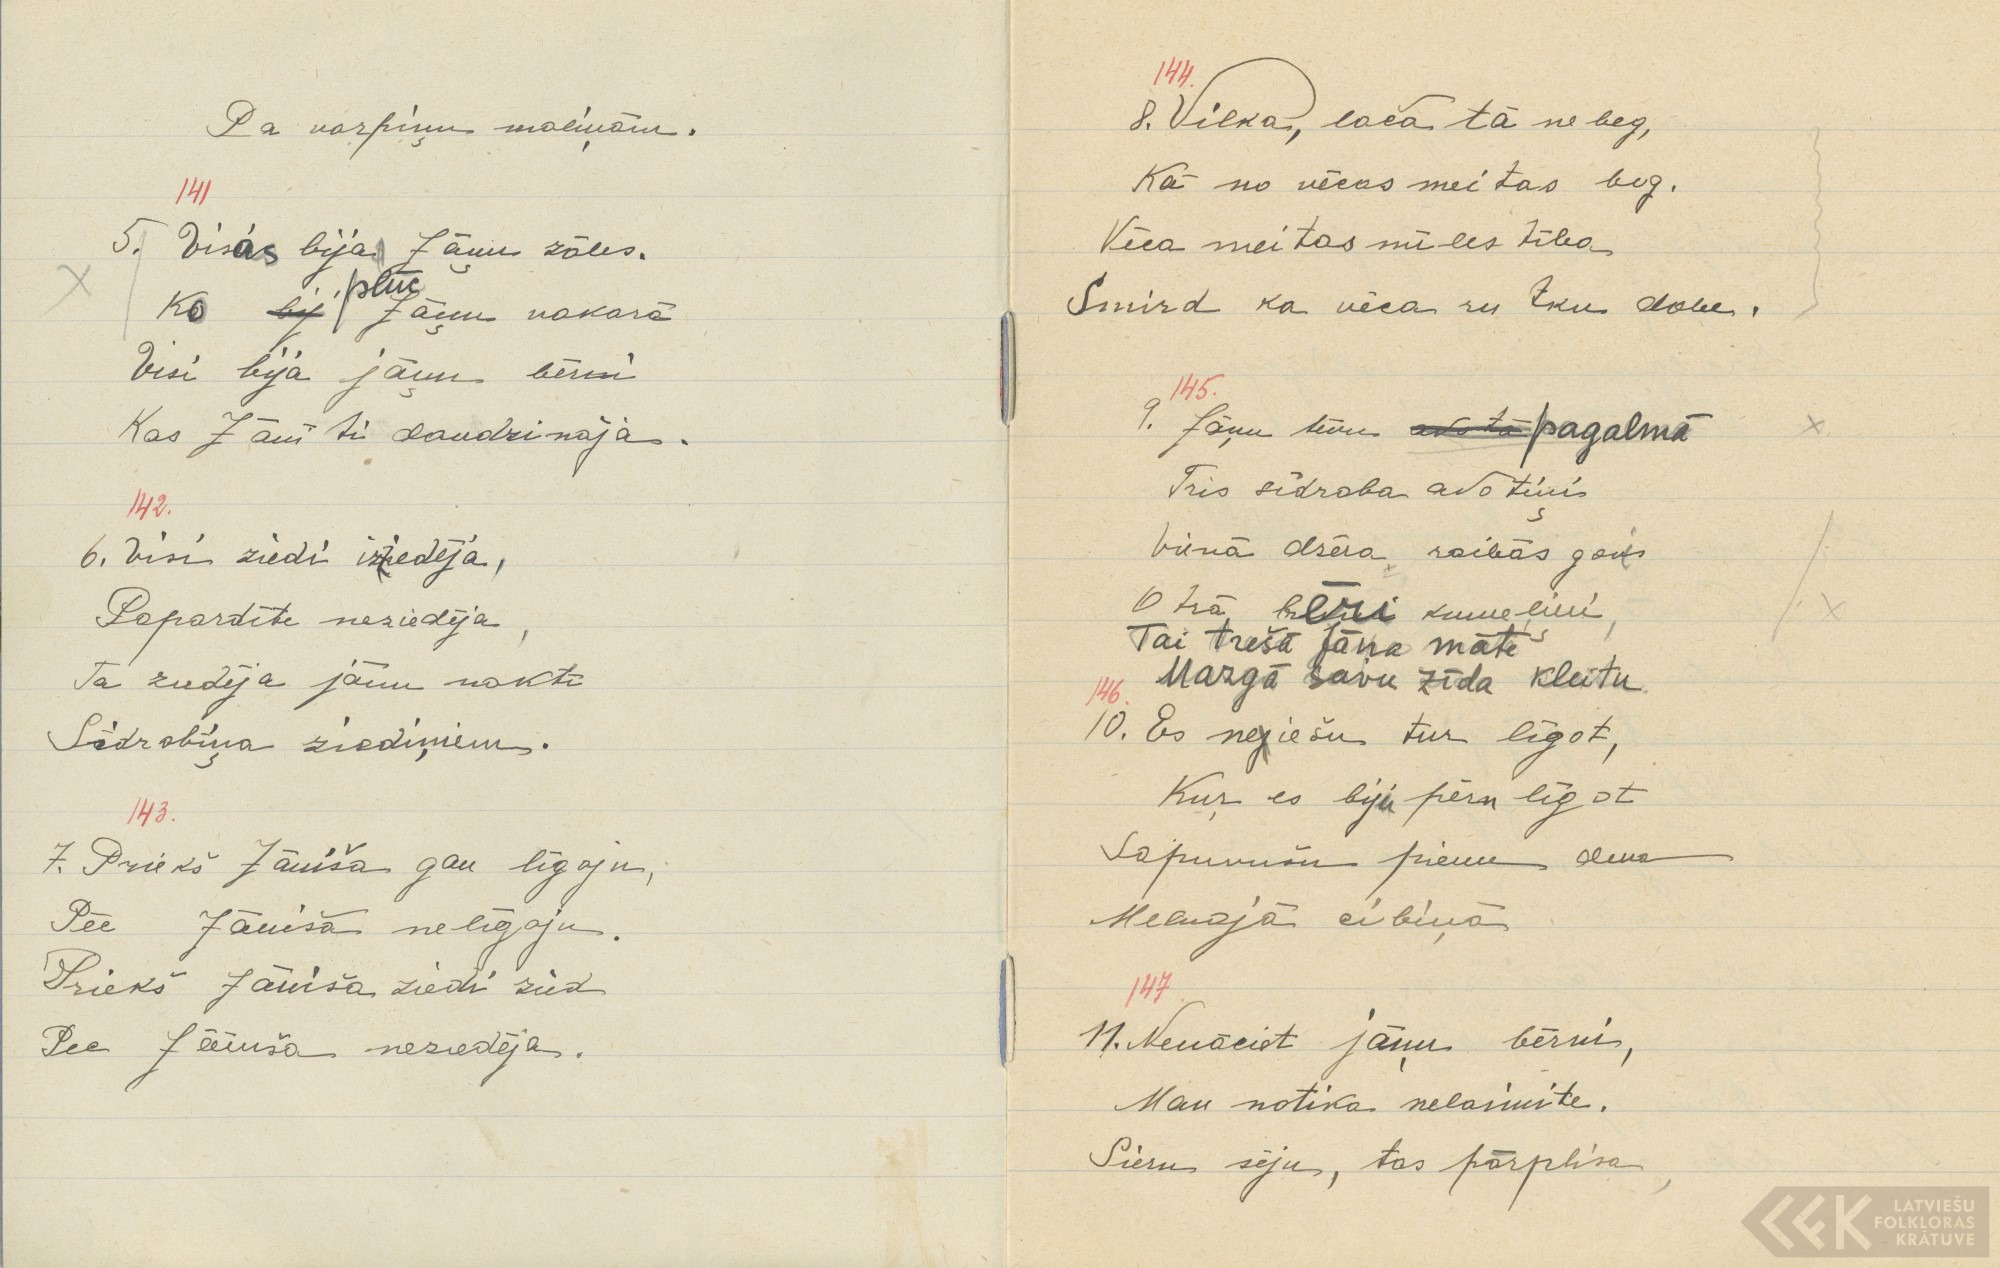 Pa varpiņu maliņām.
141
5. Visas bija Jāņu zāles.
Ko bij plūc Jāņu vakarā
Visi bija jāņu bērni
Kas Jāni ti daudzinaja.
142.
6. Visi ziedi izziedēja,
Papardīte neziedēja,
Ta ziedēja jāņu nakti
Sidrabiņa ziediņiem.
143.
7. Prieks Jāniša gan līgoju,
Pēc Jāniša nelīgoju.
Prieks Jāniša ziedi zied
Pec Jāniša neziedēja.
144.
8. Vilka, lača tā ne beg,
Kā no vēcas meitas beg.
Vēca meitas mīlestiba
Smird ka vēca ru tku dobe.
145.
9. Jāņu tēvu avotā pagalmā
Tris sidraba avotiņi
Vienā dzēra raibās govis
Otrā bēri kumeliņi,
Tai trešā Jāņa māte
Mazgā savu zīda kleitu
146.
10. Es neiešu tur līgot,
Kur es biju pērn līgot
Sapuvušu pienu deva
Melnajā cibiņā
147
11. Nenāciet jāņu bērni,
Man notika nelaimite.
Sieru sēju, tas pārplisa,
LATVIEŠU
FOLKLORAS
KRĀTUVE